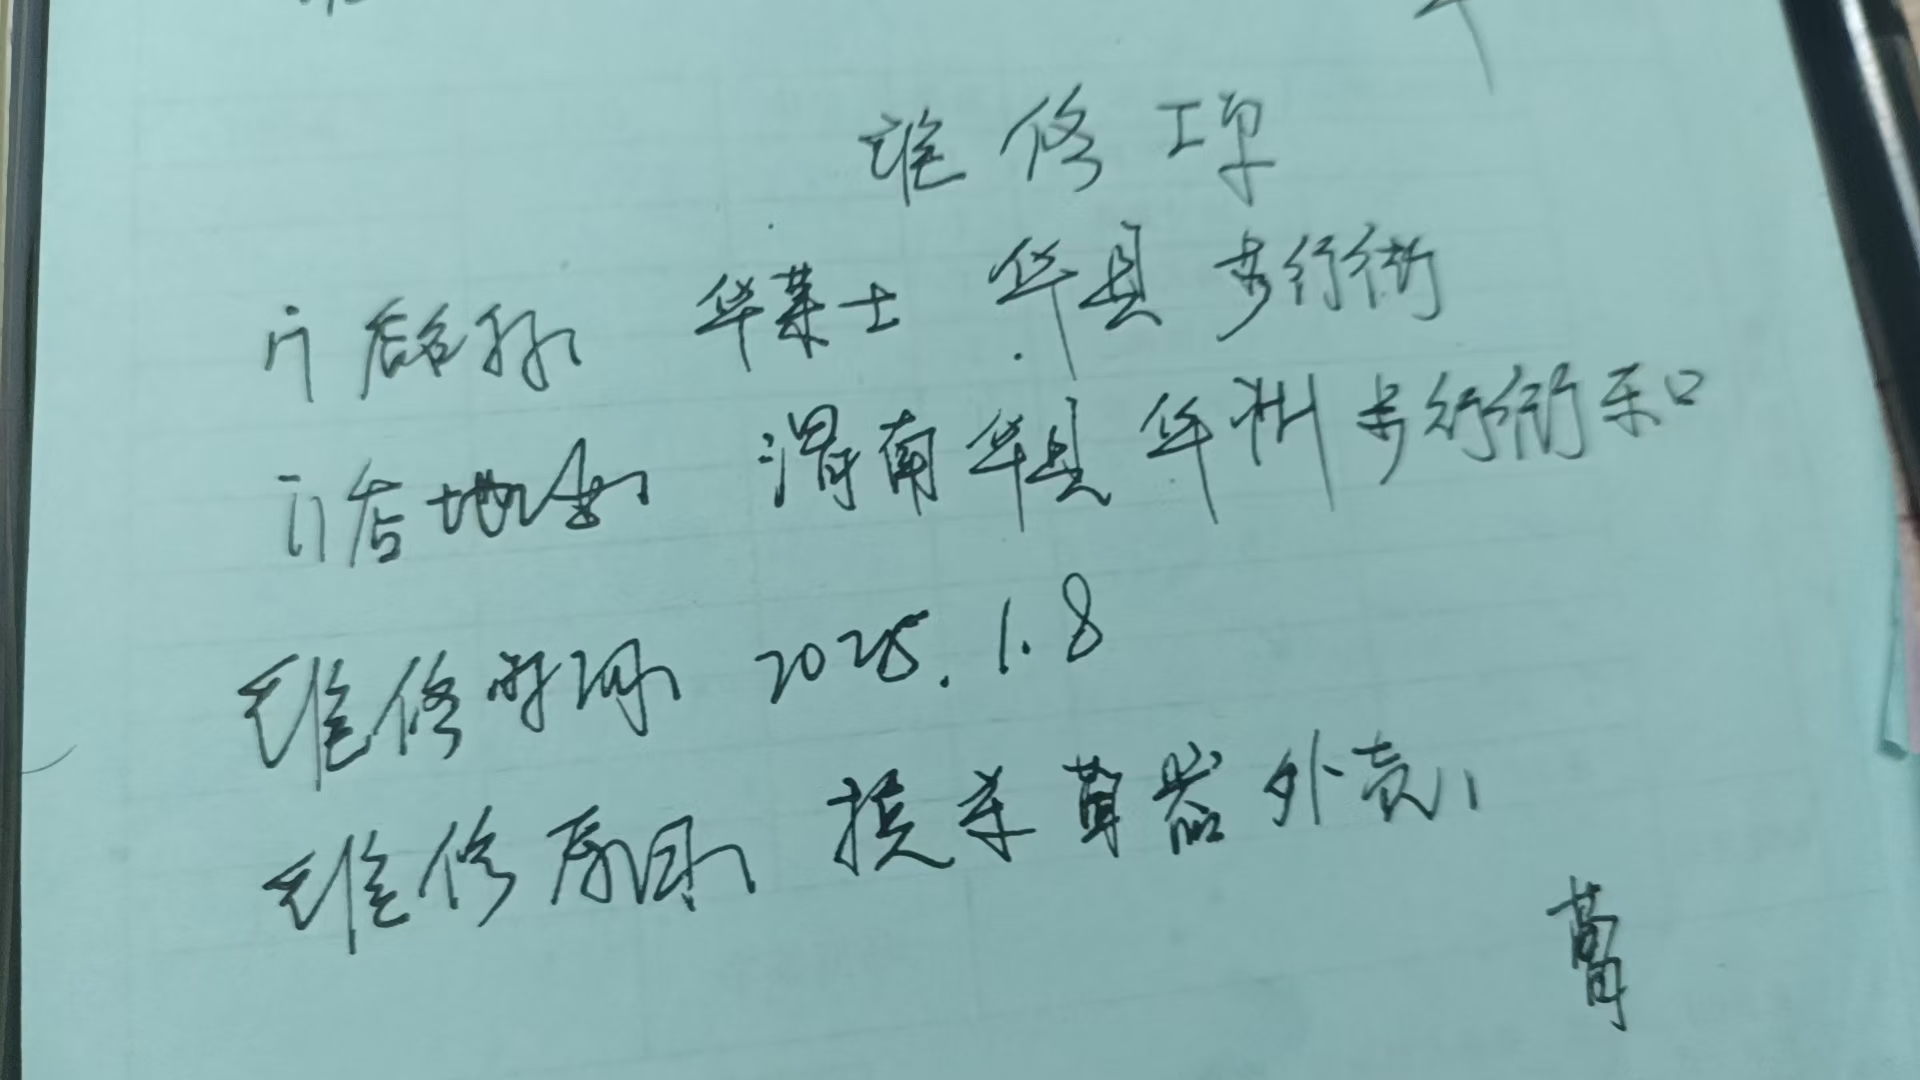 维修工单
门店名称 华莱士 华县步行街
门店地址 渭南华县华州步行街东口
维修时间 2025.1.8
维修原因 换杀菌器外壳